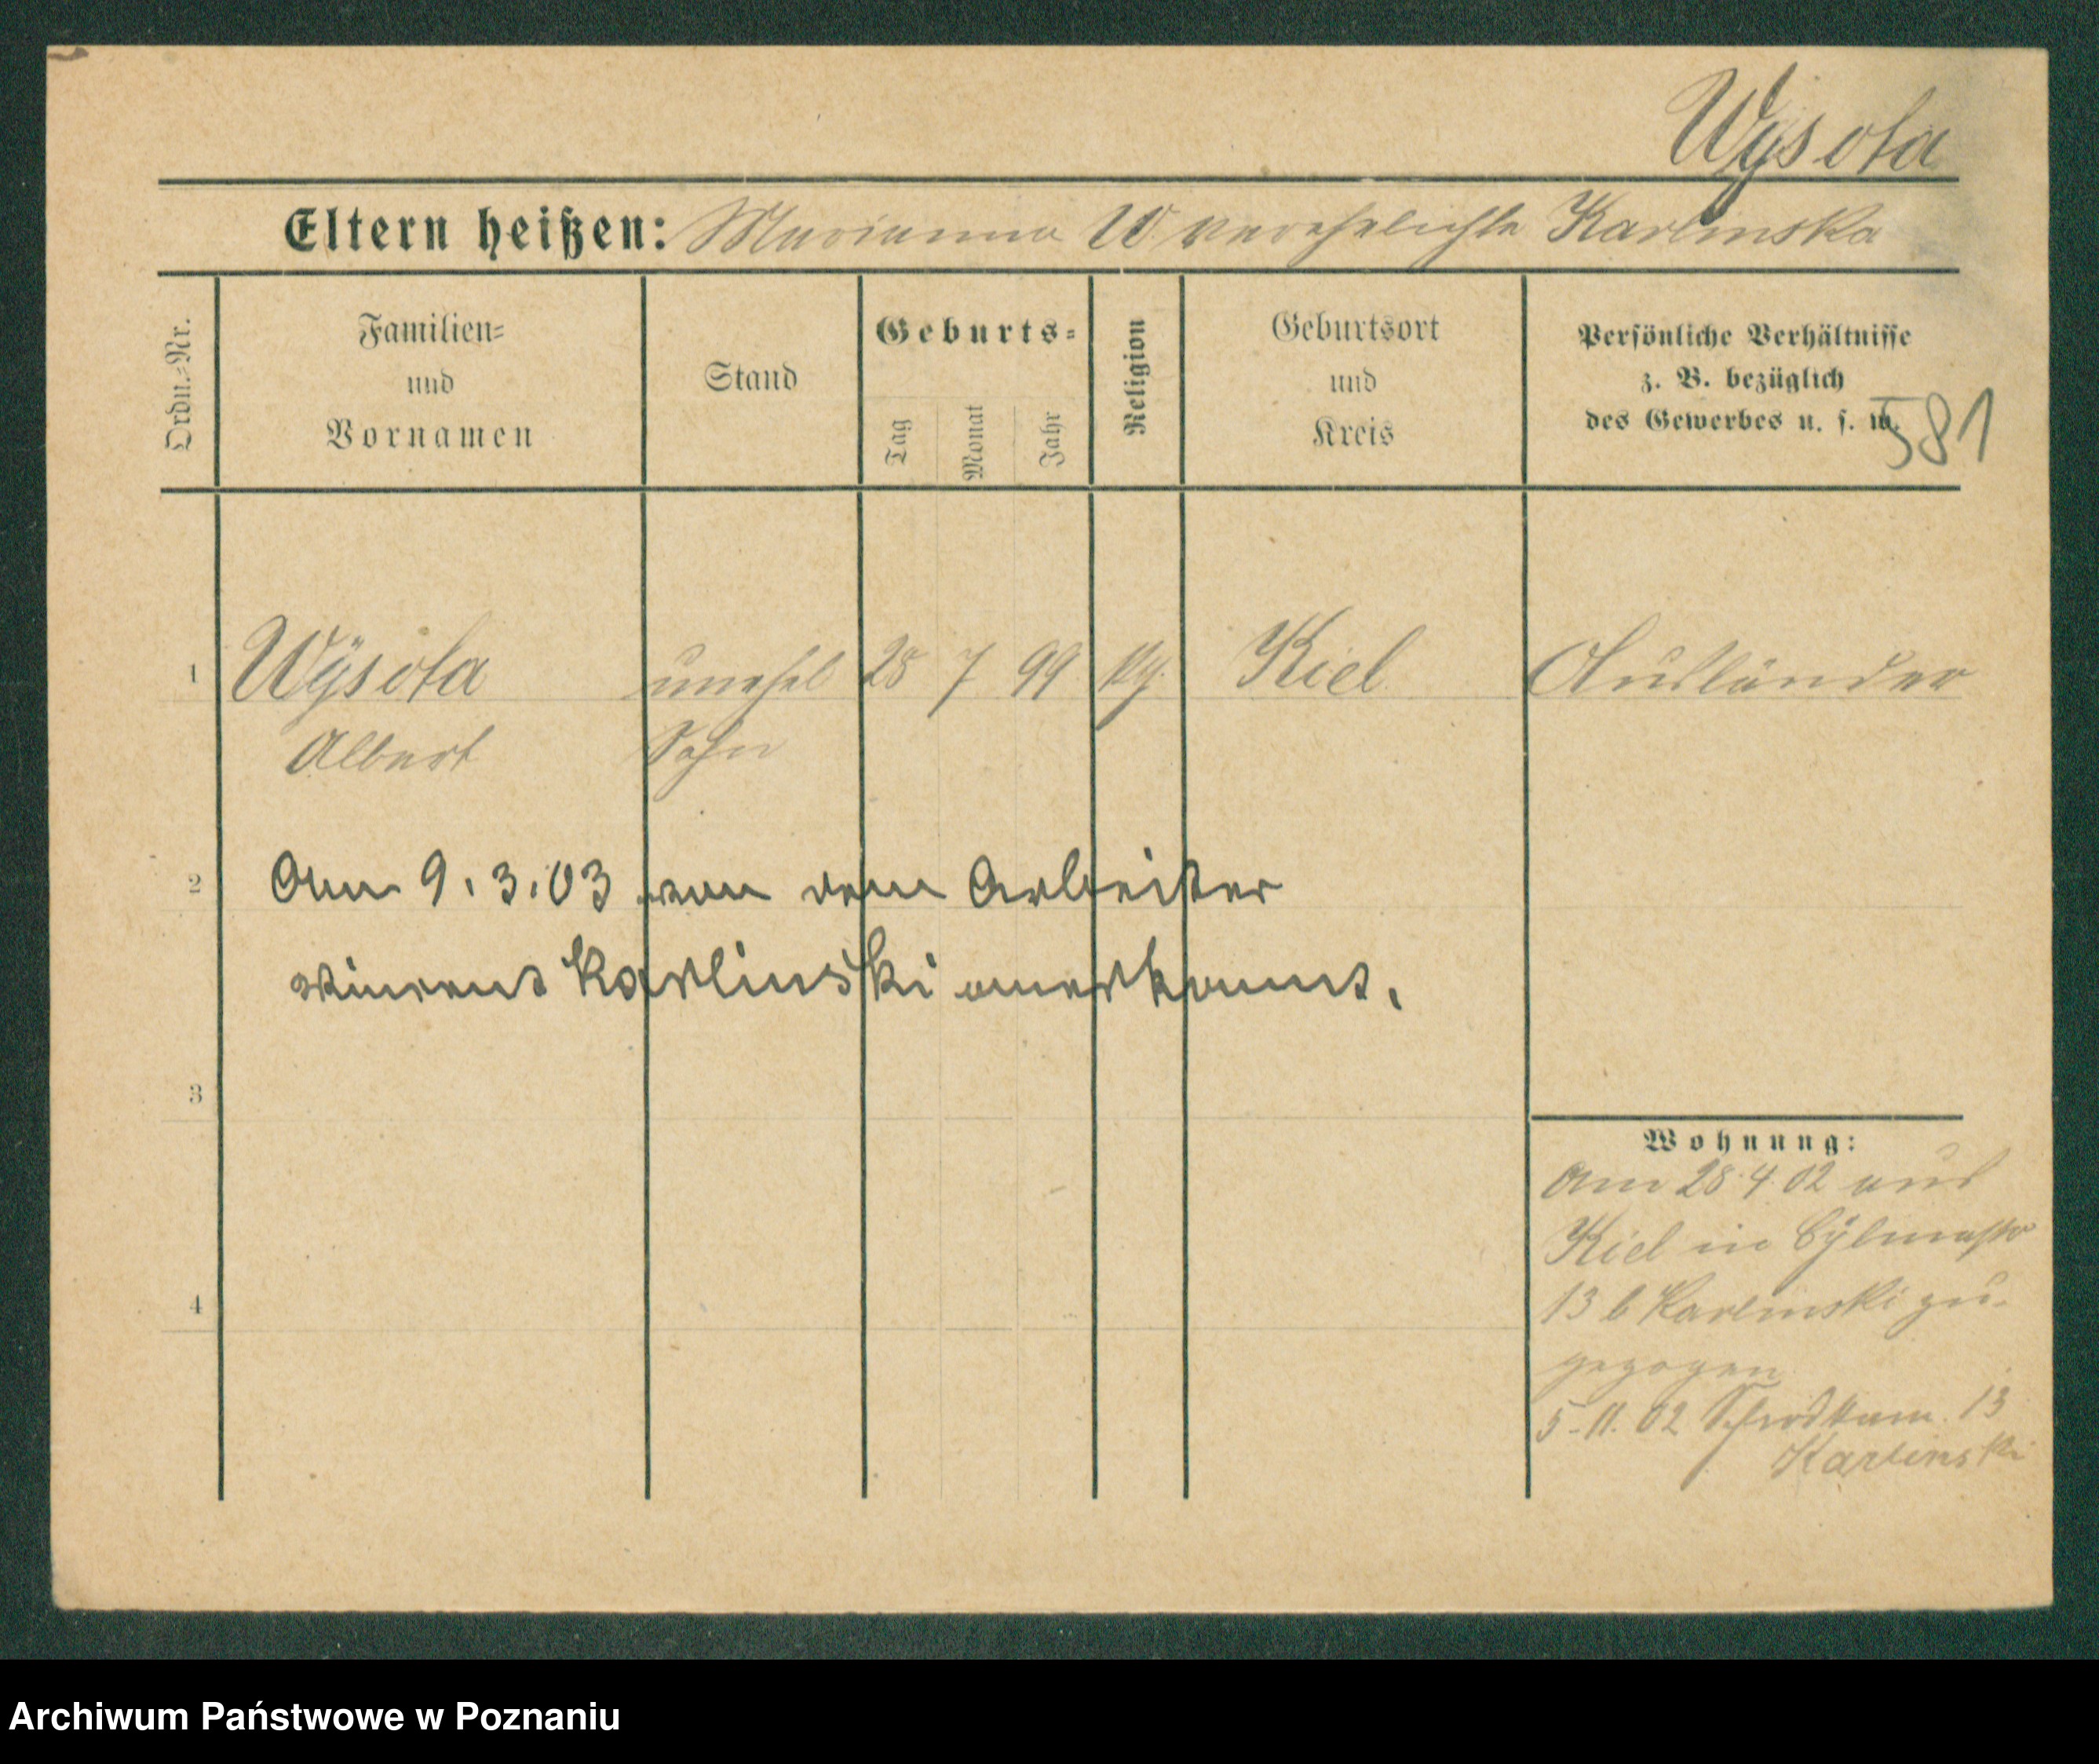 Wysota
Eltern heißen: Marianna W verehelichte Karlinska
Ordn.-Nr.
Familien-
und
Vornamen
Stand
Geburts-
Tag
Monat
Jahr
Religion
Geburtsort
und
Kreis
Persönliche Verhältnisse
z. B. bezüglich
des Gewerbes u. s. w.
581
1 Wÿsota unehel 28 7 99 Kiel Ausländer
Albert Sohn
2 Am 9.3.03 von dem Arbeiter
Vincent Karlinski anerkannt.
3
Wohnung:
Am 28.4.02 aus
Kiel in
13 b Karlinski zu-
gezogen
4
5.11.02 13
Karlinski
Archiwum Państwowe w Poznaniu